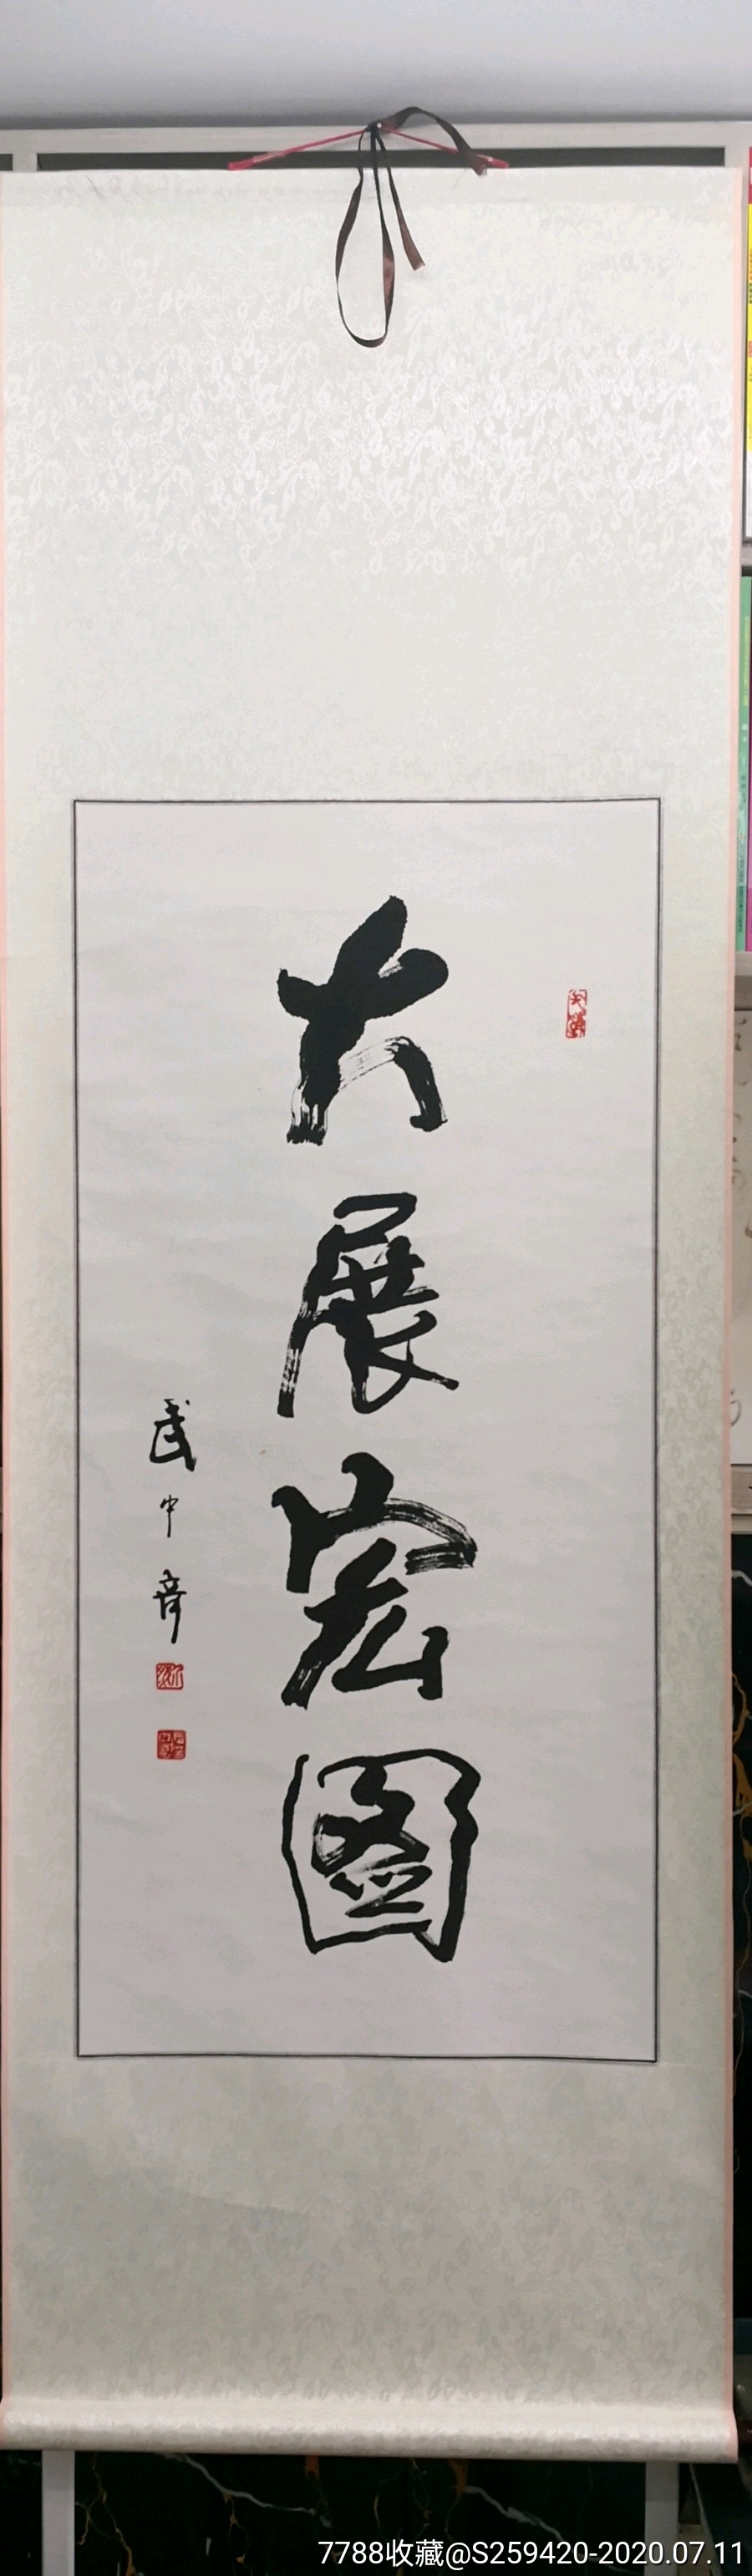 大展宏图
武中奇
7788收藏@S259420-2020.07.11